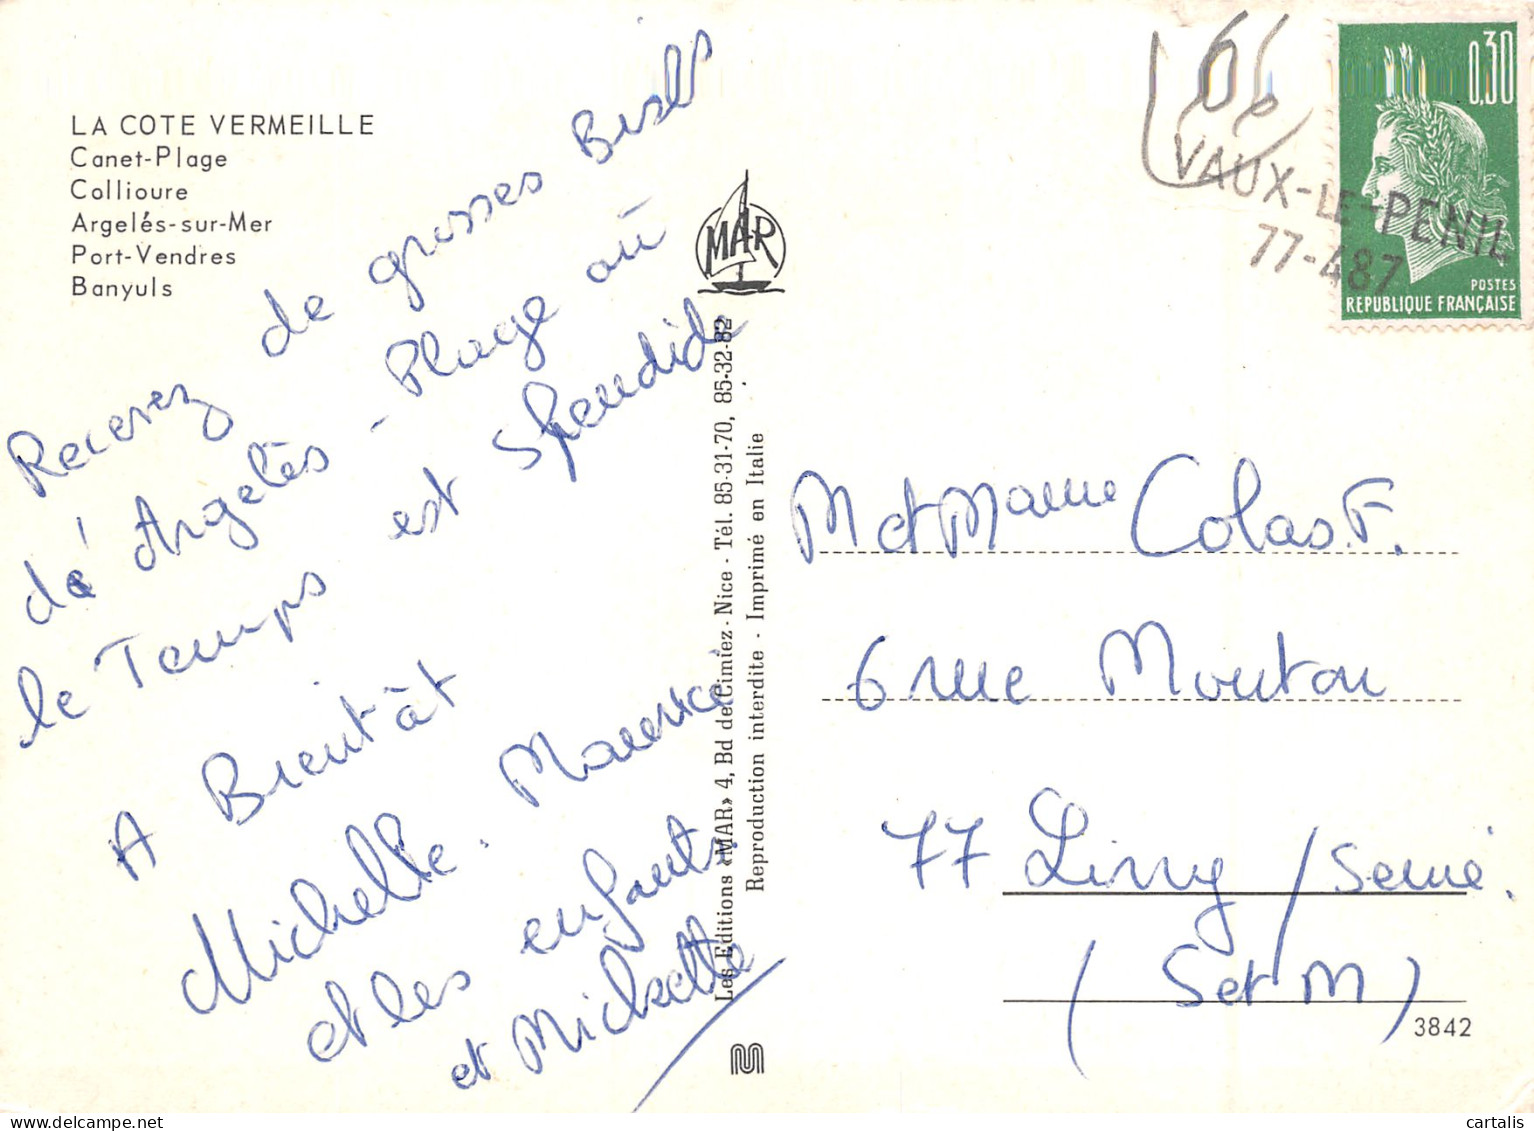 LA COTE VERMEILLE
Canet-Plage
Collioure
Argelés-sur-Mer
Port-Vendres
Banyuls
Recevez de grosses Bises
dé Argelès - Plage où
le Temps est splendide
A Bientât
Michelle. Maurice
et les enfants
et Michette
MAR
Les Editions «MAR» 4, Bd de Cimiez - Nice - Tél. 85-31-70, 85-32-82
Reproduction interdite - Imprimé en Italie
0,30
POSTES
REPUBLIQUE FRANÇAISE
VAUX-LE-PENIL
77-487
M et Mame Colas.F.
6 rue Mouton
77 Livry / Seine.
(Set M)
3842